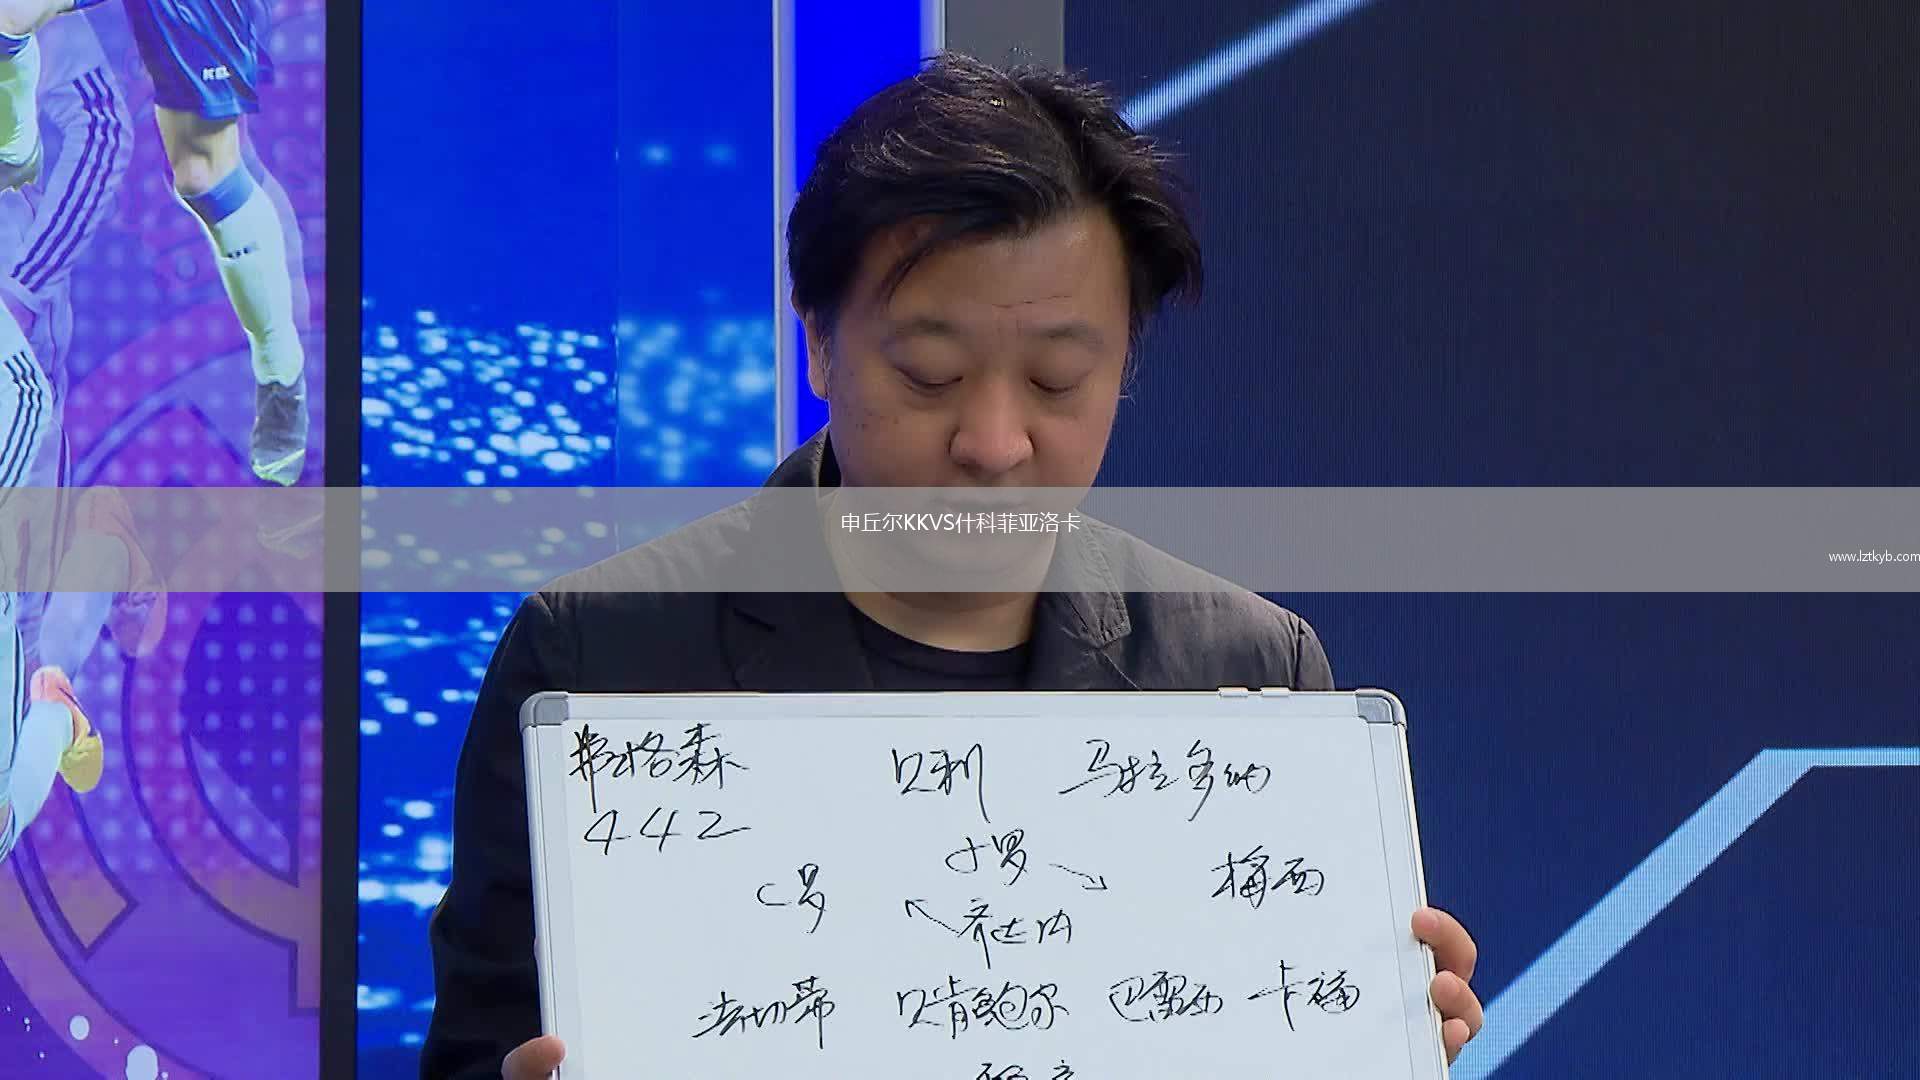 KEL
申丘尔KKVS什科菲亚洛卡
www.lztkyb.com
弗格森 贝利 马拉多纳
442
小罗
C罗 梅西
齐达内
法切蒂 贝肯鲍尔 巴雷西 卡福